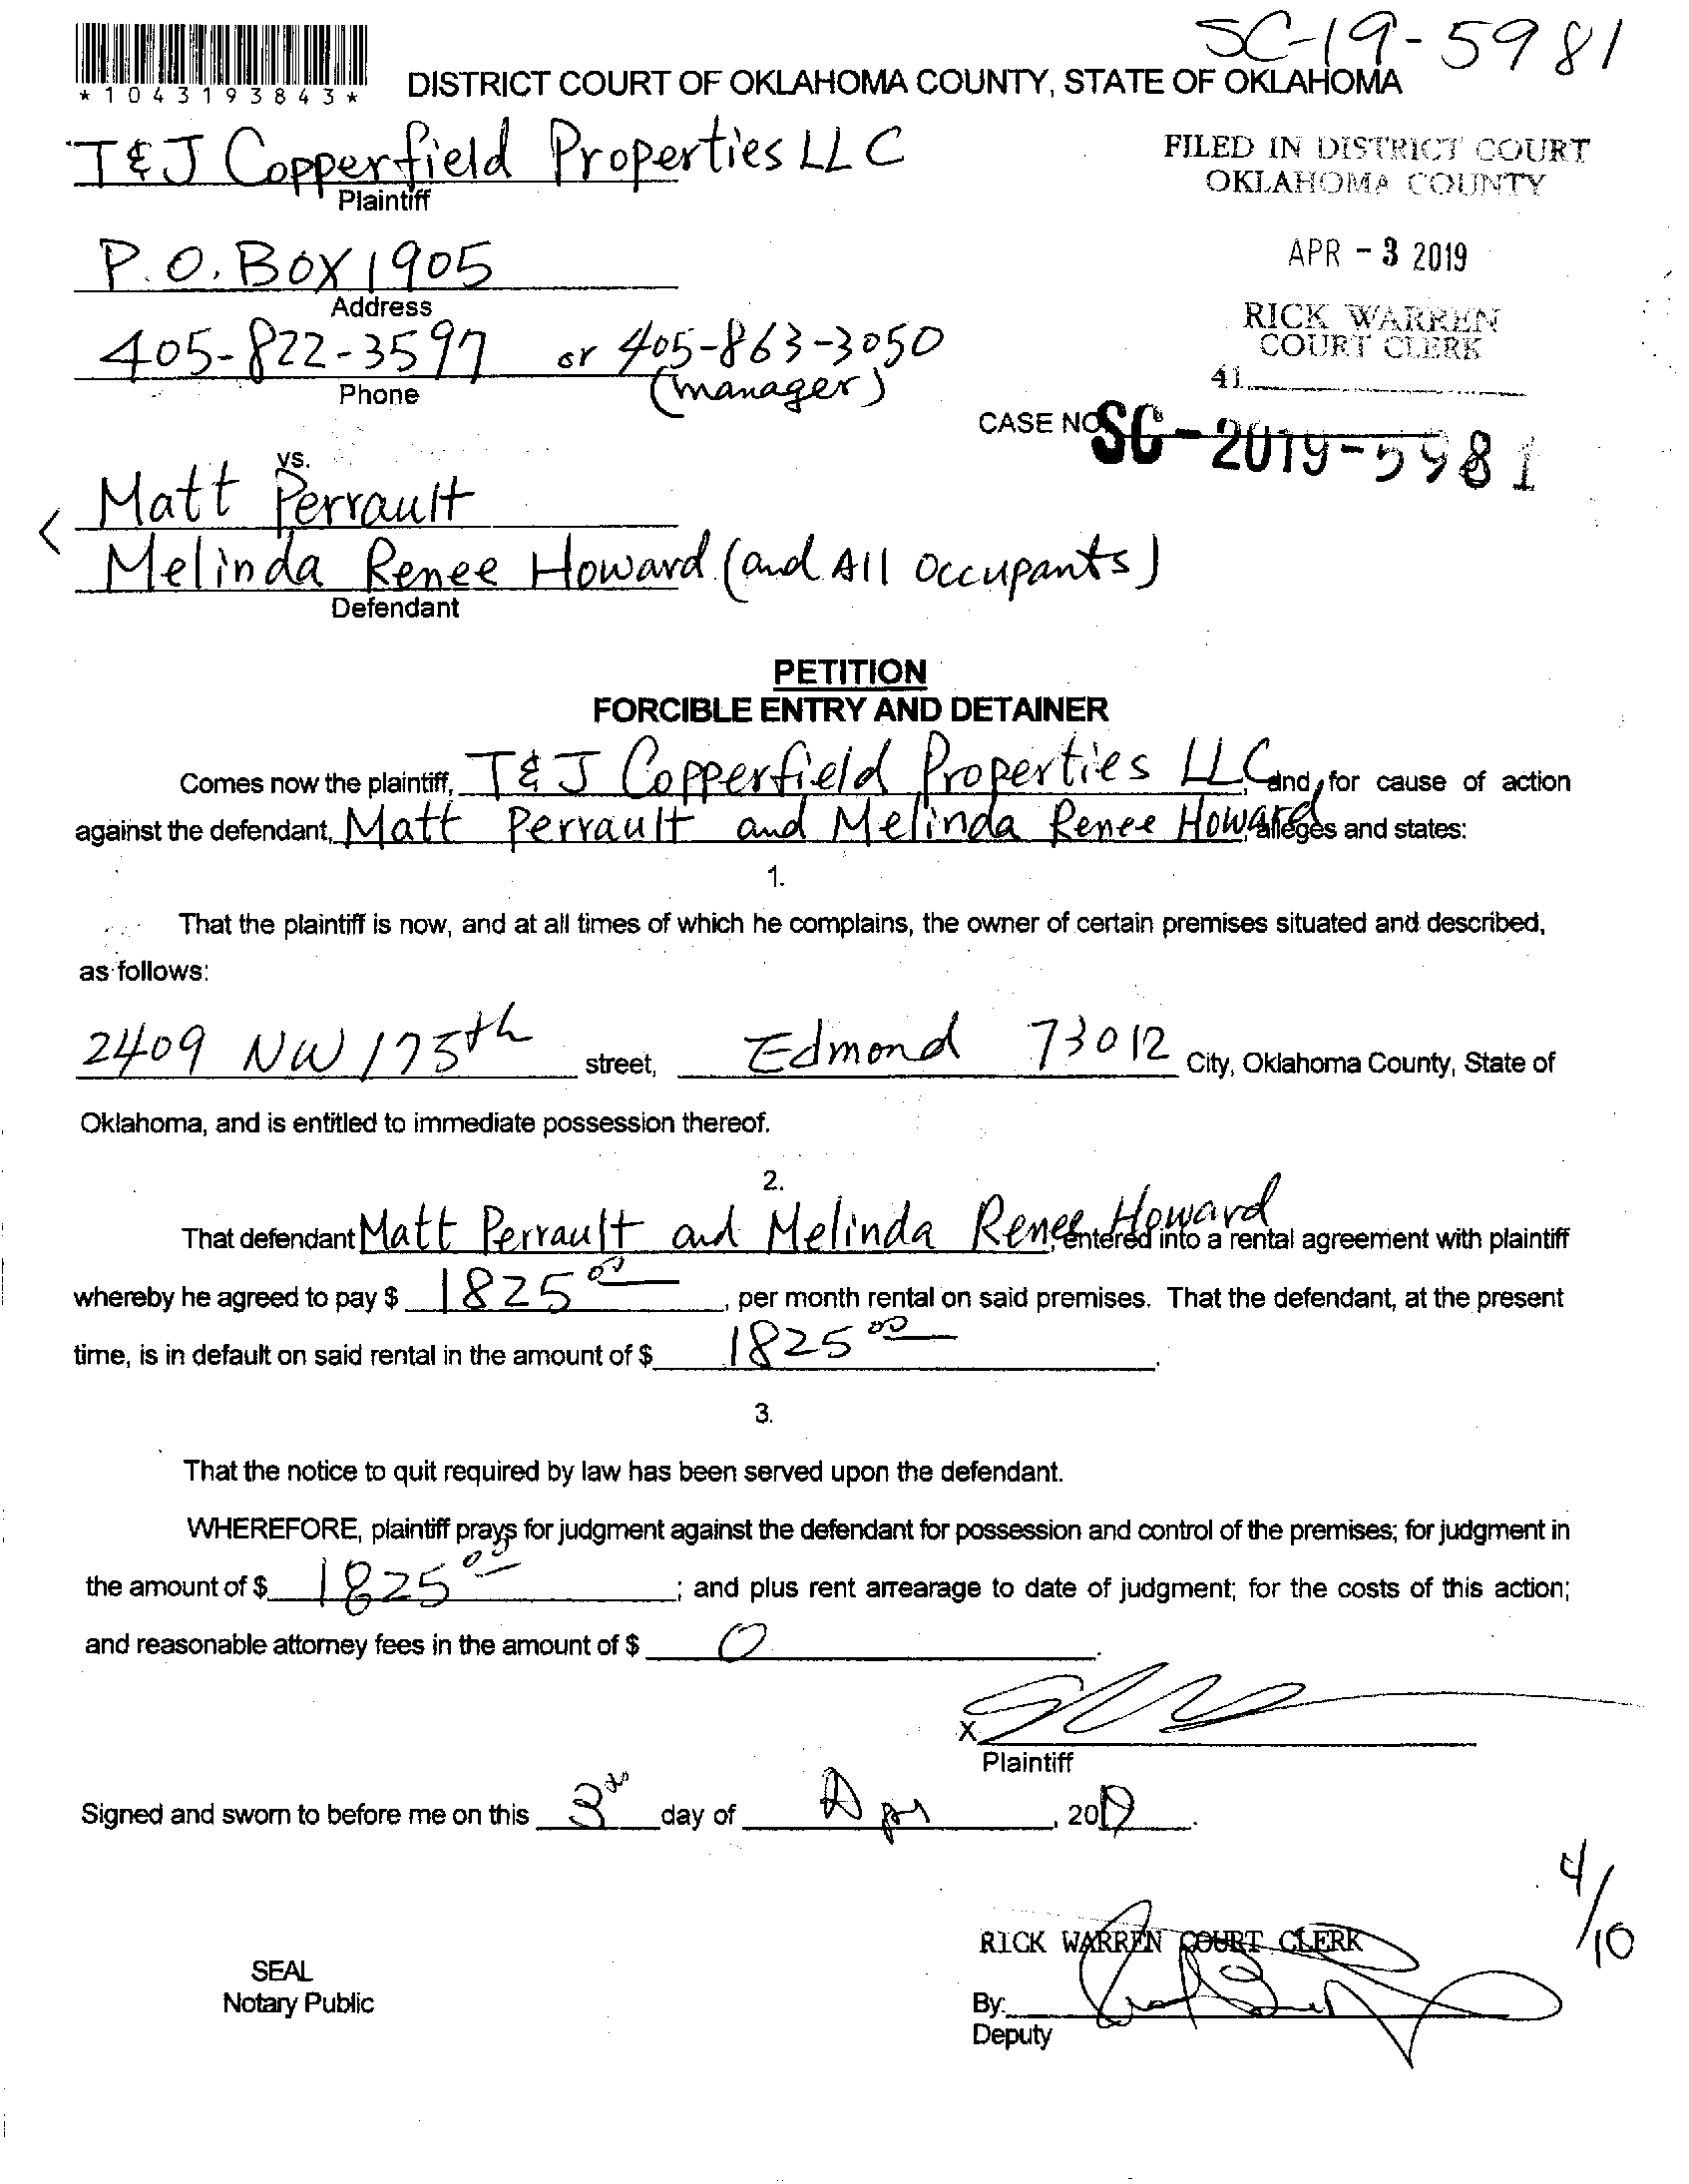 SC-19-5981
*1043193843*
DISTRICT COURT OF OKLAHOMA COUNTY, STATE OF OKLAHOMA
T&J Copperfield Properties LLC
Plaintiff
FILED IN DISTRICT COURT
OKLAHOMA COUNTY
P.O. BOX 1905
Address
APR - 3 2019
405-822-3597 or 405-863-3050
Phone
(manager)
RICK WARREN
COURT CLERK
41
CASE NO SC-2019-5981
vs.
Matt Perrault
Melinda Renee Howard (and All Occupants)
Defendant
PETITION
FORCIBLE ENTRY AND DETAINER
Comes now the plaintiff, T & J Copperfield Properties LLC, and, for cause of action
against the defendant, Matt Perrault and Melinda Renee Howard, alleges and states:
1.
That the plaintiff is now, and at all times of which he complains, the owner of certain premises situated and described,
as follows:
2409 NW 175th street, Edmond 73012 City, Oklahoma County, State of
Oklahoma, and is entitled to immediate possession thereof.
2.
That defendant Matt Perrault and Melinda Renee Howard, entered into a rental agreement with plaintiff
whereby he agreed to pay $ 1825 00, per month rental on said premises. That the defendant, at the present
time, is in default on said rental in the amount of $ 1825 00.
3.
That the notice to quit required by law has been served upon the defendant.
WHEREFORE, plaintiff prays for judgment against the defendant for possession and control of the premises; for judgment in
the amount of $ 1825 00; and plus rent arrearage to date of judgment; for the costs of this action;
and reasonable attorney fees in the amount of $ 0.
X
Plaintiff
Signed and sworn to before me on this 3rd day of Apr, 2019.
4/10
RICK WARREN COURT CLERK
SEAL
Notary Public
By:
Deputy